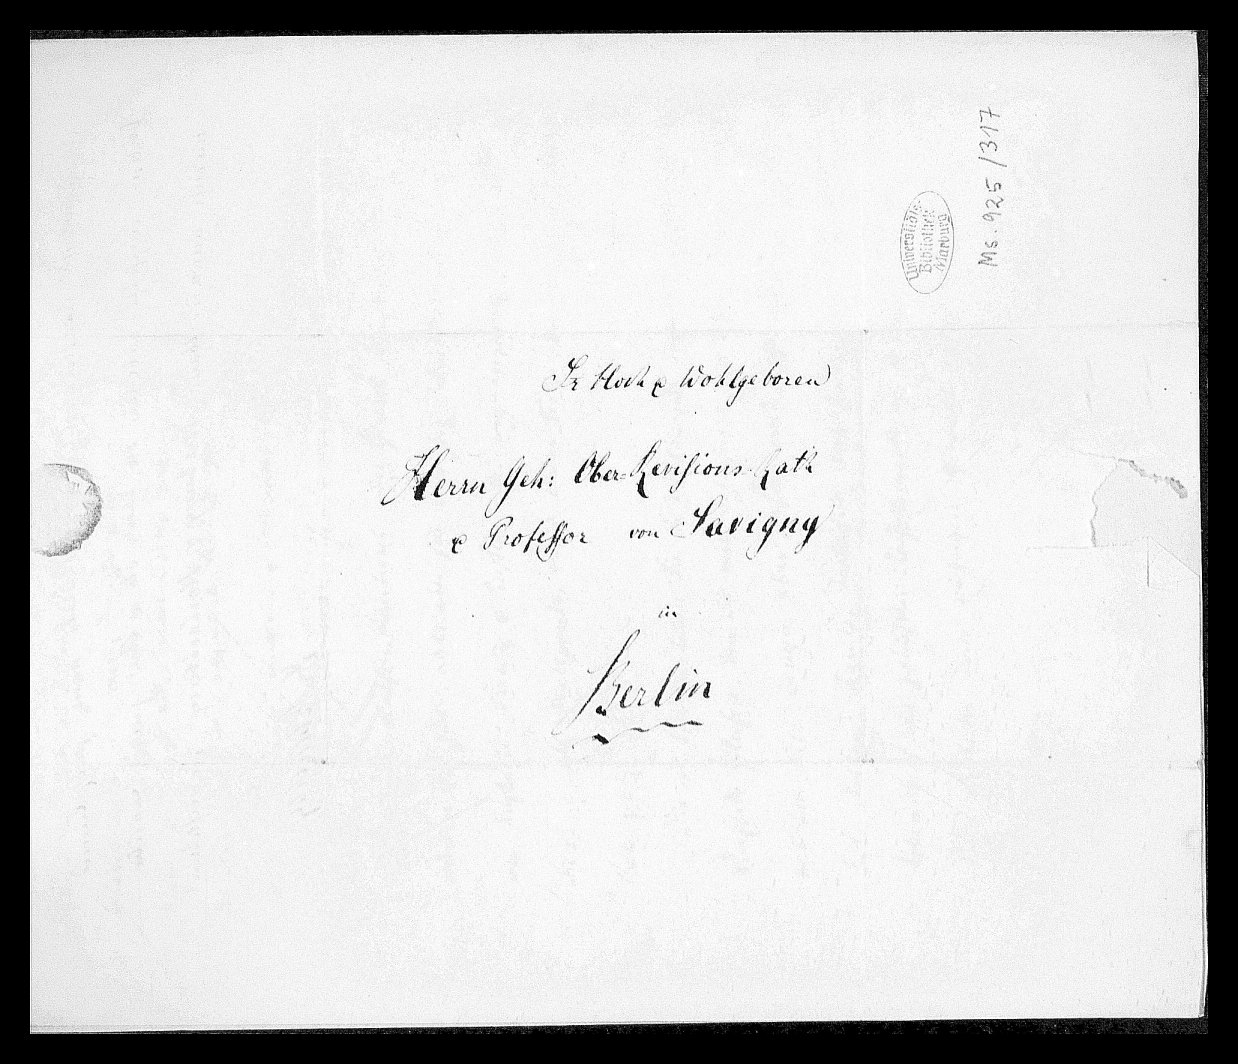 Ms. 925/317
Universitäts-
Bibliothek
Marburg
Sr Hoch u Wohlgeboren
Herrn Geh: Ober-Revisions-Rath
u Professor von Savigny
in
Berlin